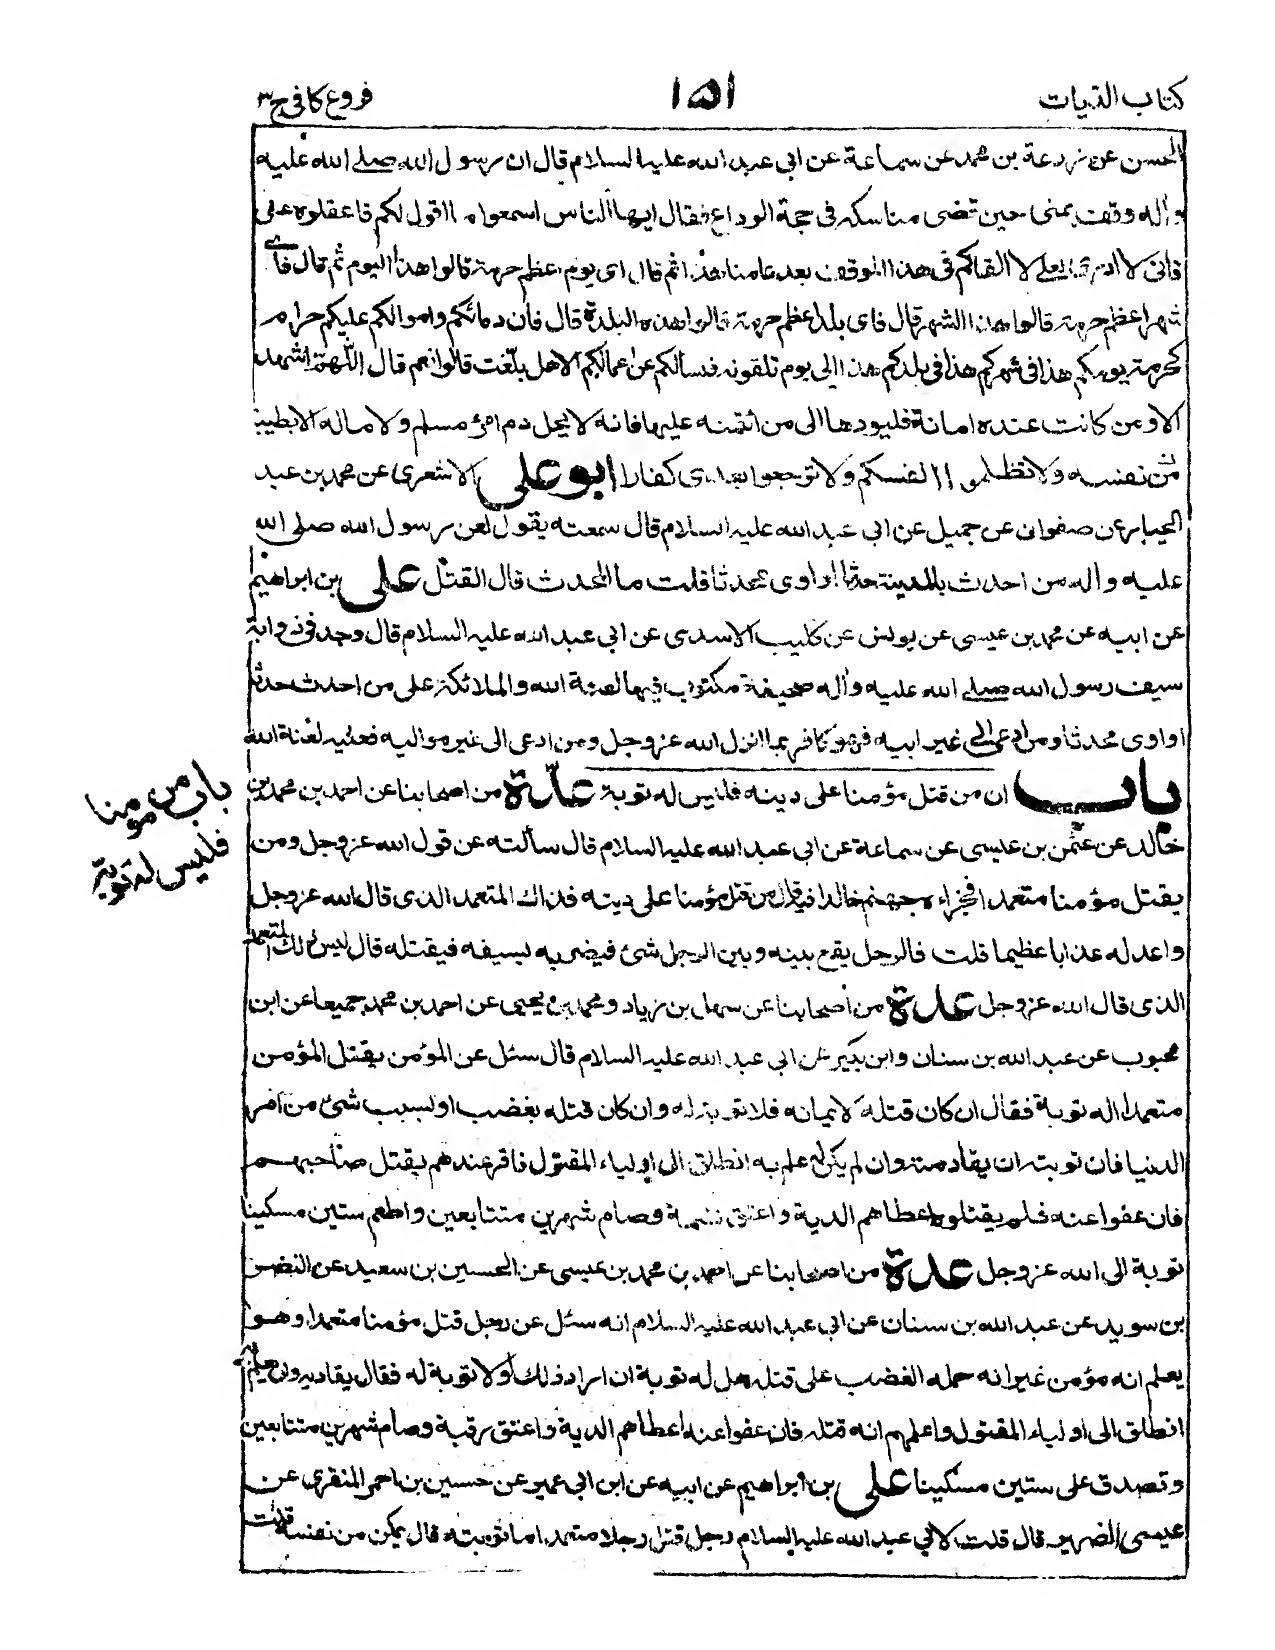 كتاب الديات ١٥١ فروع كافى ج٣
الحسن عن زرعة بن محمد عن سماعة عن ابى عبد الله عليه السلام قال ان رسول الله صلى الله عليه
واله وقف بمنى حين قضى مناسكه فى حجة الوداع فقال ايها الناس اسمعوا ما اقول لكم فاعقلوه عنى
فانى لا ادرى لعلى لا القاكم فى هذا الموقف بعد عامنا هذا ثم قال اى يوم اعظم حرمة قالوا هذا اليوم ثم قال فاى
شهر اعظم حرمة قالوا هذا الشهر قال فاى بلد اعظم حرمة قالوا هذه البلدة قال فان دمائكم واموالكم عليكم حرام
كحرمة يومكم هذا فى شهركم هذا فى بلدكم هذا الى يوم تلقونه فيسألكم عن اعمالكم الا هل بلغت قالوا نعم قال اللهم اشهد
الا ومن كانت عنده امانة فليؤدها الى من ائتمنه عليها فانه لا يحل دم امرئ مسلم ولا ماله الا بطيبة
من نفسه ولا تظلموا انفسكم ولا ترجعوا بعدى كفارا ابو على الاشعرى عن محمد بن عبد
الجبار عن صفوان عن جميل عن ابى عبد الله عليه السلام قال سمعته يقول لعن رسول الله صلى الله
عليه واله من احدث بالمدينة حدثا او اوى محدثا قلت ما المحدث قال القتل على بن ابراهيم
عن ابيه عن محمد بن عيسى عن يونس عن كليب الاسدى عن ابى عبد الله عليه السلام قال وجد فى ذوابة
سيف رسول الله صلى الله عليه واله صحيفة مكتوب فيها لعنة الله والملائكة على من احدث حدثا
او اوى محدثا ومن ادعى الى غير ابيه فهو كافر بما انزل الله عز وجل ومن ادعى الى غير مواليه فعليه لعنة الله
باب ان من قتل مؤمنا على دينه فليس له توبة عدة من اصحابنا عن احمد بن محمد بن
باب من مؤمنا
فليس له توبة
خالد عن عثمن بن عيسى عن سماعة عن ابى عبد الله عليه السلام قال سألته عن قول الله عز وجل ومن
يقتل مؤمنا متعمدا فجزاءه جهنم خالدا فيها قال من قتل مؤمنا على دينه فذاك المتعمد الذى قال الله عز وجل
واعد له عذابا عظيما قلت فالرجل يقع بينه وبين الرجل شئ فيضربه بسيفه فيقتله قال ليس ذلك المتعمد
الذى قال الله عز وجل عدة من اصحابنا عن سهل بن زياد ومحمد بن يحيى عن احمد بن محمد جميعا عن ابن
محبوب عن عبد الله بن سنان وابن بكير عن ابى عبد الله عليه السلام قال سئل عن المؤمن يقتل المؤمن
متعمدا اله توبة فقال ان كان قتله لايمانه فلا توبة له وان كان قتله بغضب او لسبب شئ من امر
الدنيا فان توبته ان يقاد منه وان لم يكن علم به انطلق الى اولياء المقتول فاقر عندهم بقتل صاحبهم
فان عفوا عنه فلم يقتلوه اعطاهم الدية واعتق نسمة وصام شهرين متتابعين واطعم ستين مسكينا
توبة الى الله عز وجل عدة من اصحابنا عن احمد بن محمد بن عيسى عن الحسين بن سعيد عن النضر
بن سويد عن عبد الله بن سنان عن ابى عبد الله عليه السلام انه سئل عن رجل قتل مؤمنا متعمدا وهو
يعلم انه مؤمن غير انه حمله الغضب على قتله هل له توبة ان اراد ذلك او لا توبة له فقال يقاد به وان لم يعلم به
انطلق الى اولياء المقتول واعلمهم انه قتله فان عفوا عنه اعطاهم الدية واعتق رقبة وصام شهرين متتابعين
وتصدق على ستين مسكينا على بن ابراهيم عن ابيه عن ابن ابى عمير عن حسين بن احمر المنقرى عن
عيسى الضرير قال قلت لابى عبد الله عليه السلام رجل قتل رجلا متعمدا ما توبته قال يمكن من نفسه قلت